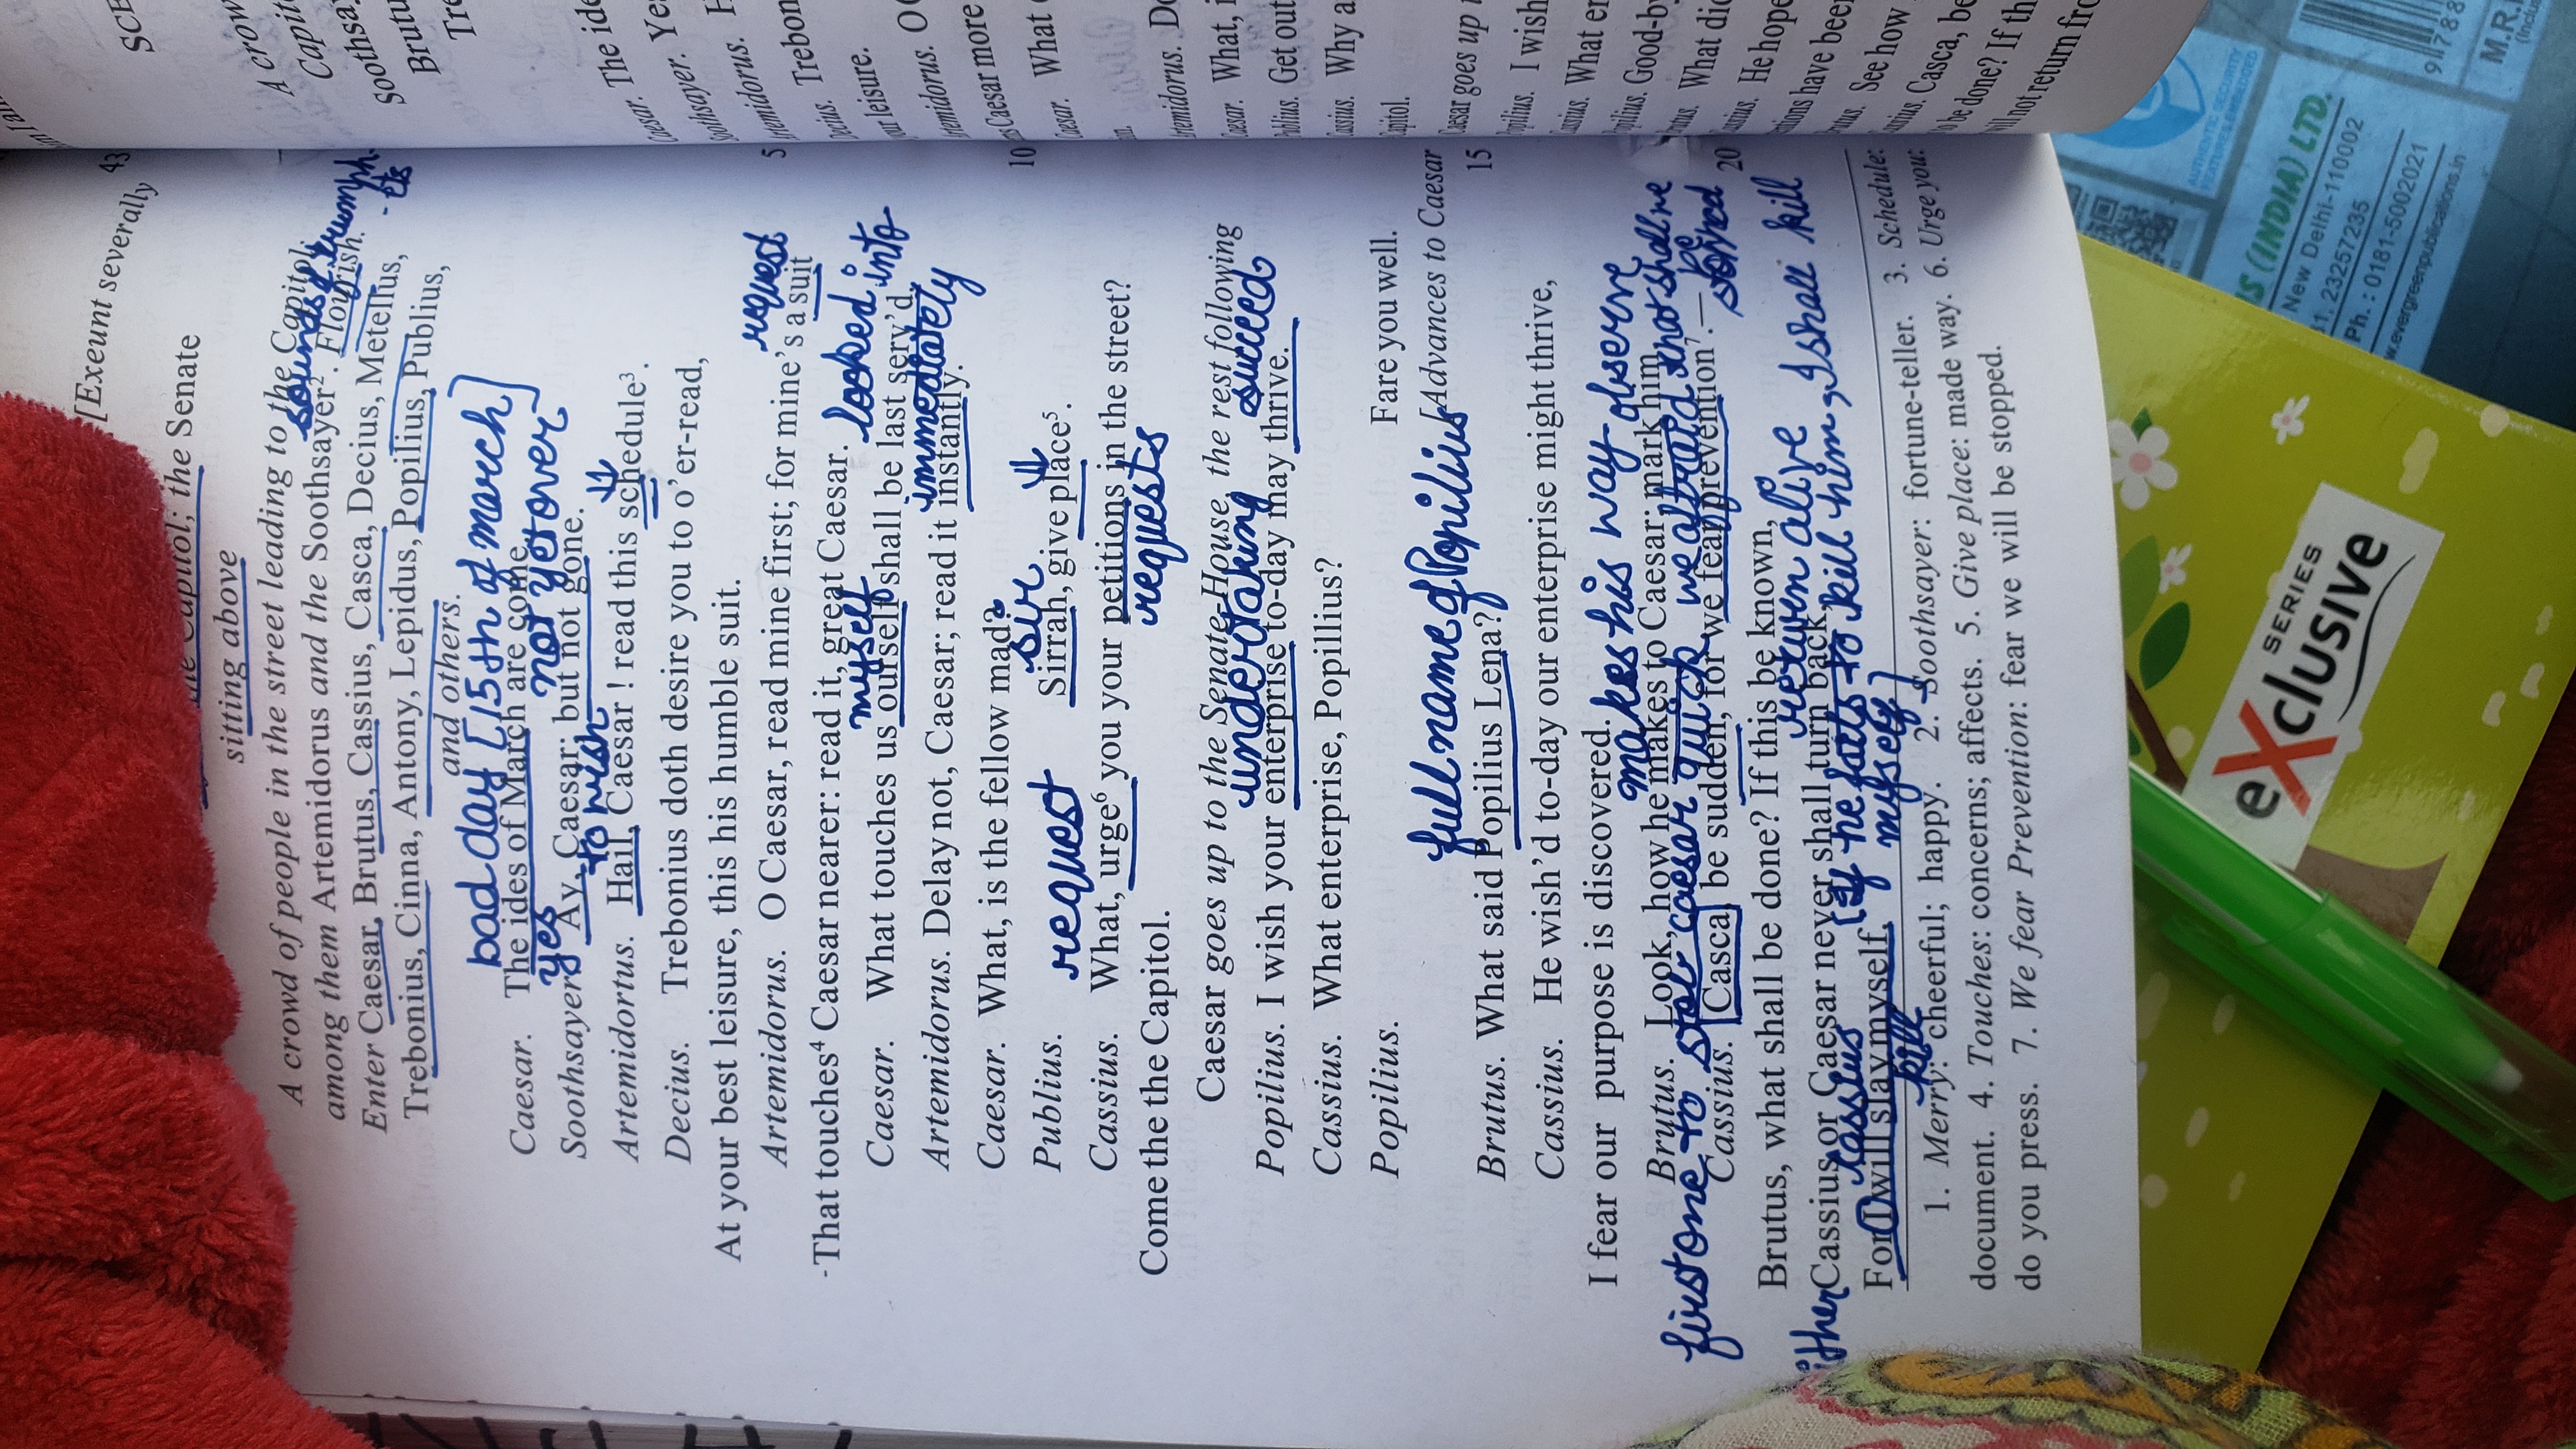 [Exeunt severally 43
the Capitol; the Senate
sitting above
A crowd of people in the street leading to the Capitol;
sounds of trumph
among them Artemidorus and the Soothsayer². Flourish.
- ets
Enter Caesar, Brutus, Cassius, Casca, Decius, Metellus,
Trebonius, Cinna, Antony, Lepidus, Popilius, Publius,
and others.
bad day [15th of march]
Caesar. The ides of March are come.
yes not yet over
Soothsayer. Ay, Caesar; but not gone.
to wish
Artemidortus. Hail, Caesar ! read this schedule³.
Decius. Trebonius doth desire you to o’er-read,
At your best leisure, this his humble suit.
request
Artemidorus. O Caesar, read mine first; for mine’s a suit 5
-That touches⁴ Caesar nearer: read it, great Caesar.
myself looked into
Caesar. What touches us ourself shall be last serv’d.
immediately
Artemidorus. Delay not, Caesar; read it instantly.
Caesar. What, is the fellow mad?
sir
Publius. Sirrah, give place⁵. 10
request
Cassius. What, urge⁶ you your petitions in the street?
requests
Come the the Capitol.
Caesar goes up to the Senate-House, the rest following
undertaking succeed
Popilius. I wish your enterprise to-day may thrive.
Cassius. What enterprise, Popillius?
Popilius. Fare you well.
[Advances to Caesar
full name of Popilius
Brutus. What said Popilius Lena? 15
Cassius. He wish’d to-day our enterprise might thrive,
I fear our purpose is discovered.
makes his way observe
Brutus. Look, how he makes to Caesar; mark him.
first one to stab caesar quick we afraid that shall we be stopped
Cassius. Casca, be sudden, for we fear prevention⁷.—
Brutus, what shall be done? If this be known, 20
return alive
ither Cassius or Caesar never shall turn back,
cassius [If he fails to kill him, I shall kill
For I will slay myself.
kill myself]
1. Merry: cheerful; happy. 2. Soothsayer: fortune-teller. 3. Schedule:
document. 4. Touches: concerns; affects. 5. Give place: made way. 6. Urge you:
do you press. 7. We fear Prevention: fear we will be stopped.
SCE
A crow
Capit
Soothsa
Brutu
Tre
Caesar. The ide
Soothsayer. Yes
Artemidorus. H
Decius. Trebon
your leisure.
Artemidorus. O
Caesar more
Caesar. What
Artemidorus. Do
Caesar. What, i
Publius. Get out
Cassius. Why a
Capitol.
Caesar goes up
Popilius. I wish
Cassius. What en
Popilius. Good-b
Brutus. What did
Cassius. He hope
Brutus. See how
Cassius. Casca, be
be done? If th
will not return fro
eXclusive
SERIES
AUTHENTIC SECURITY
FEATURES EMBEDDED
S (INDIA) LTD.
New Delhi-110002
31, 23257235
Ph. : 0181-5002021
w.evergreenpublications.in
9 788
M.R.
(Inclu